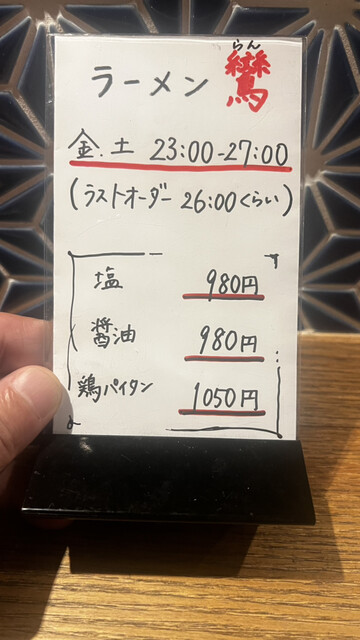 らん
ラーメン 鸞
金.土 23:00-27:00
(ラストオーダー 26:00くらい)
塩 980円
醤油 980円
鶏パイタン 1050円